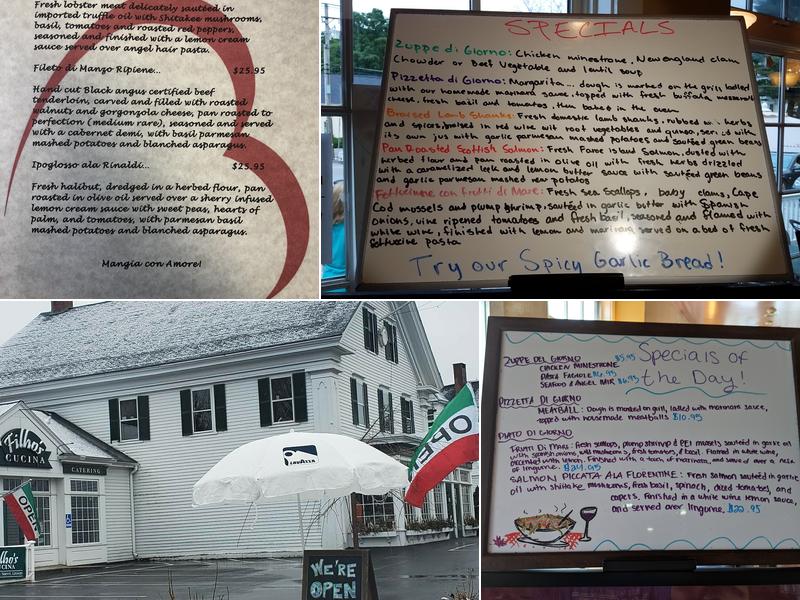 Fresh lobster meat delicately sautéed in
imported truffle oil with Shitakee mushrooms,
basil, tomatoes and roasted red peppers,
seasoned and finished with a lemon cream
sauce served over angel hair pasta.
Fileto di Manzo Ripiene... $25.95
Hand cut Black angus certified beef
tenderloin, carved and filled with roasted
walnuts and gorgonzola cheese, pan roasted to
perfection (medium rare), seasoned and served
with a cabernet demi, with basil parmesan
mashed potatoes and blanched asparagus.
Ipoglosso ala Rinaldi... $25.95
Fresh halibut, dredged in a herbed flour, pan
roasted in olive oil served over a sherry infused
lemon cream sauce with sweet peas, hearts of
palm, and tomatoes, with parmesan basil
mashed potatoes and blanched asparagus.
Mangia con Amore!
SPECIALS
Zuppe di Giorno: Chicken minestrone, New england clam
Chowder or Beef Vegetable and lentil soup
Pizzetta di Giorno: Margarita... dough is marked on the grill ladled
with our homemade marinara sauce, topped with fresh buffala mozzarella
cheese, fresh basil and tomatoes, then baked in the oven
Braised Lamb Shanks: Fresh domestic lamb shanks, rubbed w/ herbs
and spices, braised in red wine wit root vegetables and quinoa, served with
its own jus with garlic parmesan mashed potatoes and sautéed green beans
Pan Roasted Scottish Salmon: Fresh Faroe island Salmon, dusted with
herbed flour and pan roasted in olive oil with fresh herbs drizzled
with a caramelized leek and lemon butter sauce with sautéed green beans
and garlic parmesan mashed red potatoes
Fettuccine con Frutti di Mare: Fresh sea scallops, baby clams, Cape
Cod mussels and plump shrimp, sautéed in garlic butter with Spanish
onions, vine ripened tomatoes and fresh basil, seasoned and flamed with
white wine, finished with lemon and marinara served on a bed of fresh
fettuccine pasta
Try our Spicy Garlic Bread!
Filho's
CUCINA
CATERING
OPEN
OPEN
LAVAZZA
WE'RE
OPEN
Filho's
CUCINA
Specials of
the Day!
ZUPPE DEL GIORNO $5.95
CHICKEN MINESTRONE
PASTA FAGIOLE $6.95
SEAFOOD & ANGEL HAIR $6.95
PIZZETTA DI GIORNO
MEATBALL: Dough is marked on grill, ladled with marinara sauce,
topped with housemade meatballs $10.95
PIATO DI GIORNO
FRUTTI DI MARE: fresh scallops, plump shrimp & PEI mussels sautéed in garlic oil
with spanish onions, wild mushrooms, fresh tomatoes, & basil. Flamed in white wine,
accented with lemon. Finished with a touch of marinara, and served over a nest
of linguine. $24.95
SALMON PICCATA ALA FLORENTINE: Fresh Salmon sautéed in garlic
oil with shitake mushrooms, fresh basil, spinach, diced tomatoes, and
capers. Finished in a white wine lemon sauce,
and served over linguine. $22.95